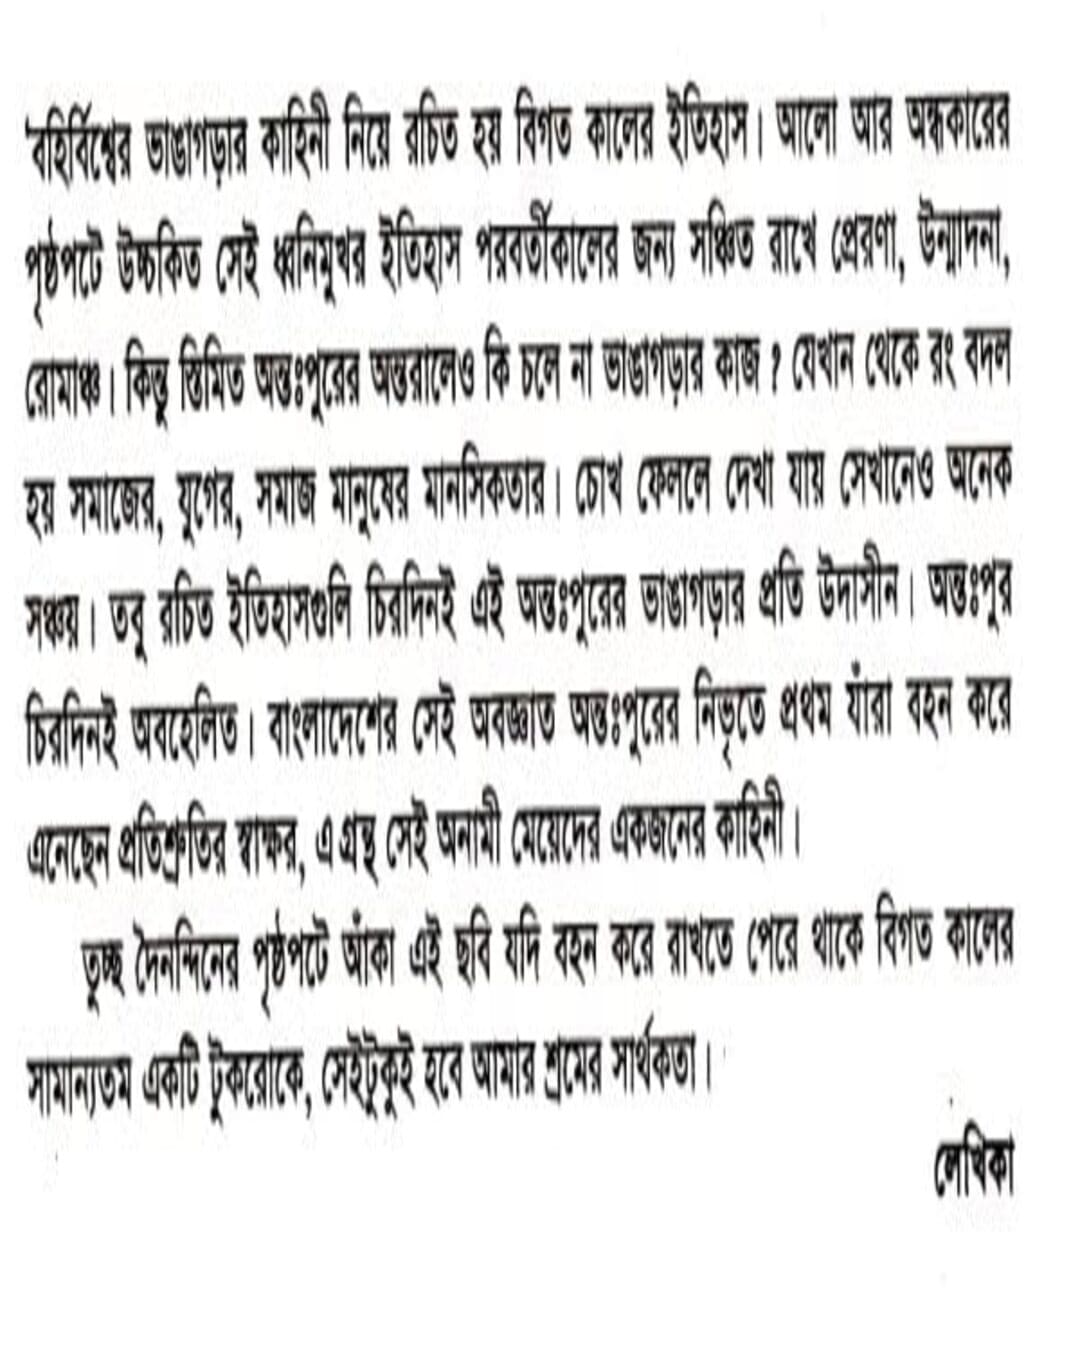 বহির্বিশ্বের ভাঙাগড়ার কাহিনী নিয়ে রচিত হয় বিগত কালের ইতিহাস। আলো আর অন্ধকারের
পৃষ্ঠপটে উচ্চকিত সেই ধ্বনিমুখর ইতিহাস পরবর্তীকালের জন্য সঞ্চিত রাখে প্রেরণা, উন্মাদনা,
রোমাঞ্চ। কিন্তু স্তিমিত অন্তঃপুরের অন্তরালেও কি চলে না ভাঙাগড়ার কাজ? যেখান থেকে রং বদল
হয় সমাজের, যুগের, সমাজ মানুষের মানসিকতার। চোখ ফেললে দেখা যায় সেখানেও অনেক
সঞ্চয়। তবু রচিত ইতিহাসগুলি চিরদিনই এই অন্তঃপুরের ভাঙাগড়ার প্রতি উদাসীন। অন্তঃপুর
চিরদিনই অবহেলিত। বাংলাদেশের সেই অবজ্ঞাত অন্তঃপুরের নিভৃতে প্রথম যাঁরা বহন করে
এনেছেন প্রতিশ্রুতির স্বাক্ষর, এ গ্রন্থ সেই অনামী মেয়েদের একজনের কাহিনী।
তুচ্ছ দৈনন্দিনের পৃষ্ঠপটে আঁকা এই ছবি যদি বহন করে রাখতে পেরে থাকে বিগত কালের
সামান্যতম একটি টুকরোকে, সেইটুকুই হবে আমার শ্রমের সার্থকতা।
লেখিকা